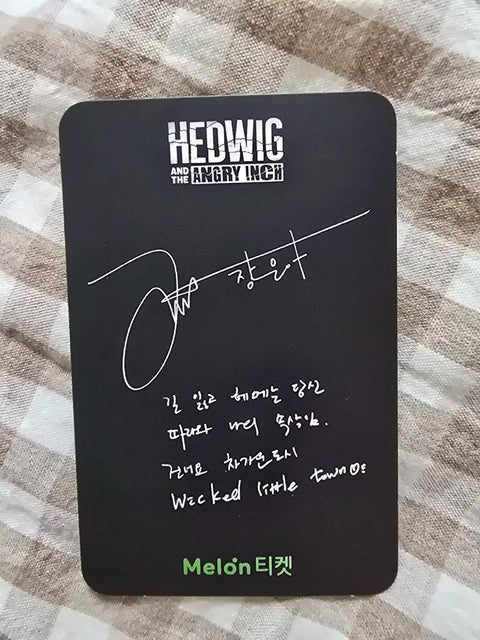 HEDWIG
AND THE ANGRY INCH
장은아
길 잃고 헤메는 당신
따라와 나의 속삭임.
건너요 차가운 도시
Wicked little town
Melon티켓